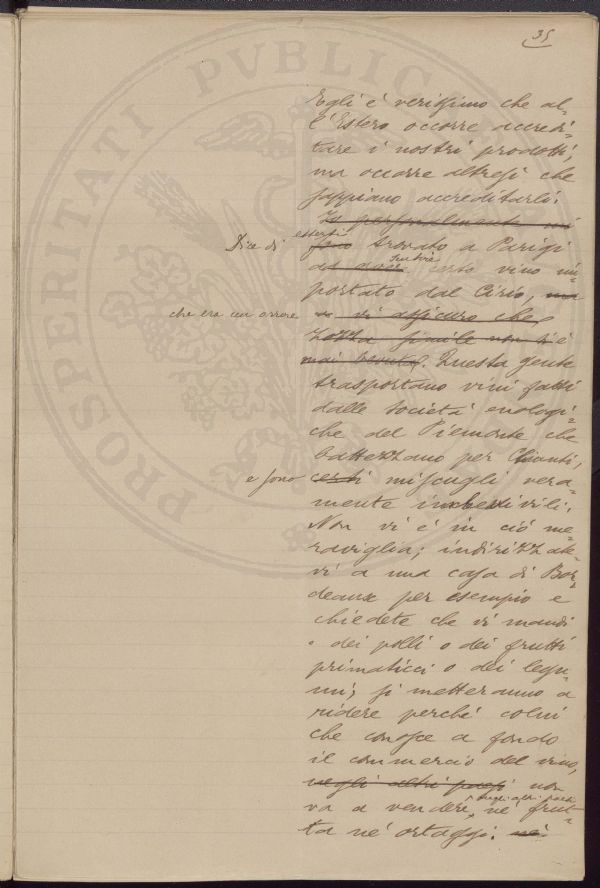 35
PROSPERITATI PVBLIC
Egli è verissimo che al-
l'Estero occorre accredi-
tare i nostri prodotti,
ma occorre altresì che
sappiano accreditarli.
Io personalmente mi
Dice di essersi sono trovato a Parigi
ad aver sentire certo vino im-
portato dal Cirio, ma
che era un orrore vi assicuro che
zozza simile non si è
mai veduta. Questa gente
trasportano vini fatti
dalle società enologi-
che del Piemonte che
battezzano per Chianti,
e sono certi miscugli vera-
mente imbevivili.
Non vi è in ciò me-
raviglia; indirizzate-
vi a una casa di Bor-
deaux per esempio e
chiedete che vi mandi
o dei polli o dei frutti
primaticci o dei legu-
mi; si metteranno a
ridere perché colui
che conosce a fondo
il commercio del vino,
negli altri paesi non
va a vendere, negli altri paesi né frut-
ta né ortaggi. né